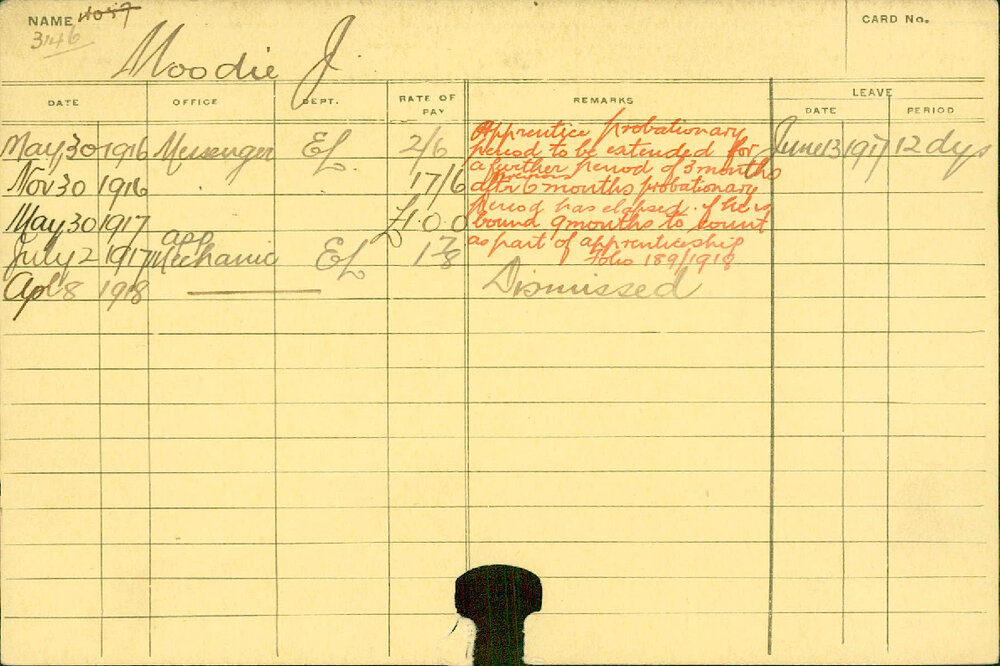 NAME 4057 CARD No.
3146
Moodie J.
LEAVE
DATE OFFICE DEPT. RATE OF PAY REMARKS DATE PERIOD
May 30 1916 Messenger EL 2/6 June 13 1917 12 dys
Nov 30 1916 17/6
May 30 1917 £1.0.0
July 2 1917 app Mechanic EL 17/8
Apl 8 1918 Dismissed
Apprentice probationary
period to be extended for
a further period of 3 months
previous
after 6 months probationary
period has elapsed. if he is
bound 9 months to count
as part of apprenticeship
Folio 189/1918